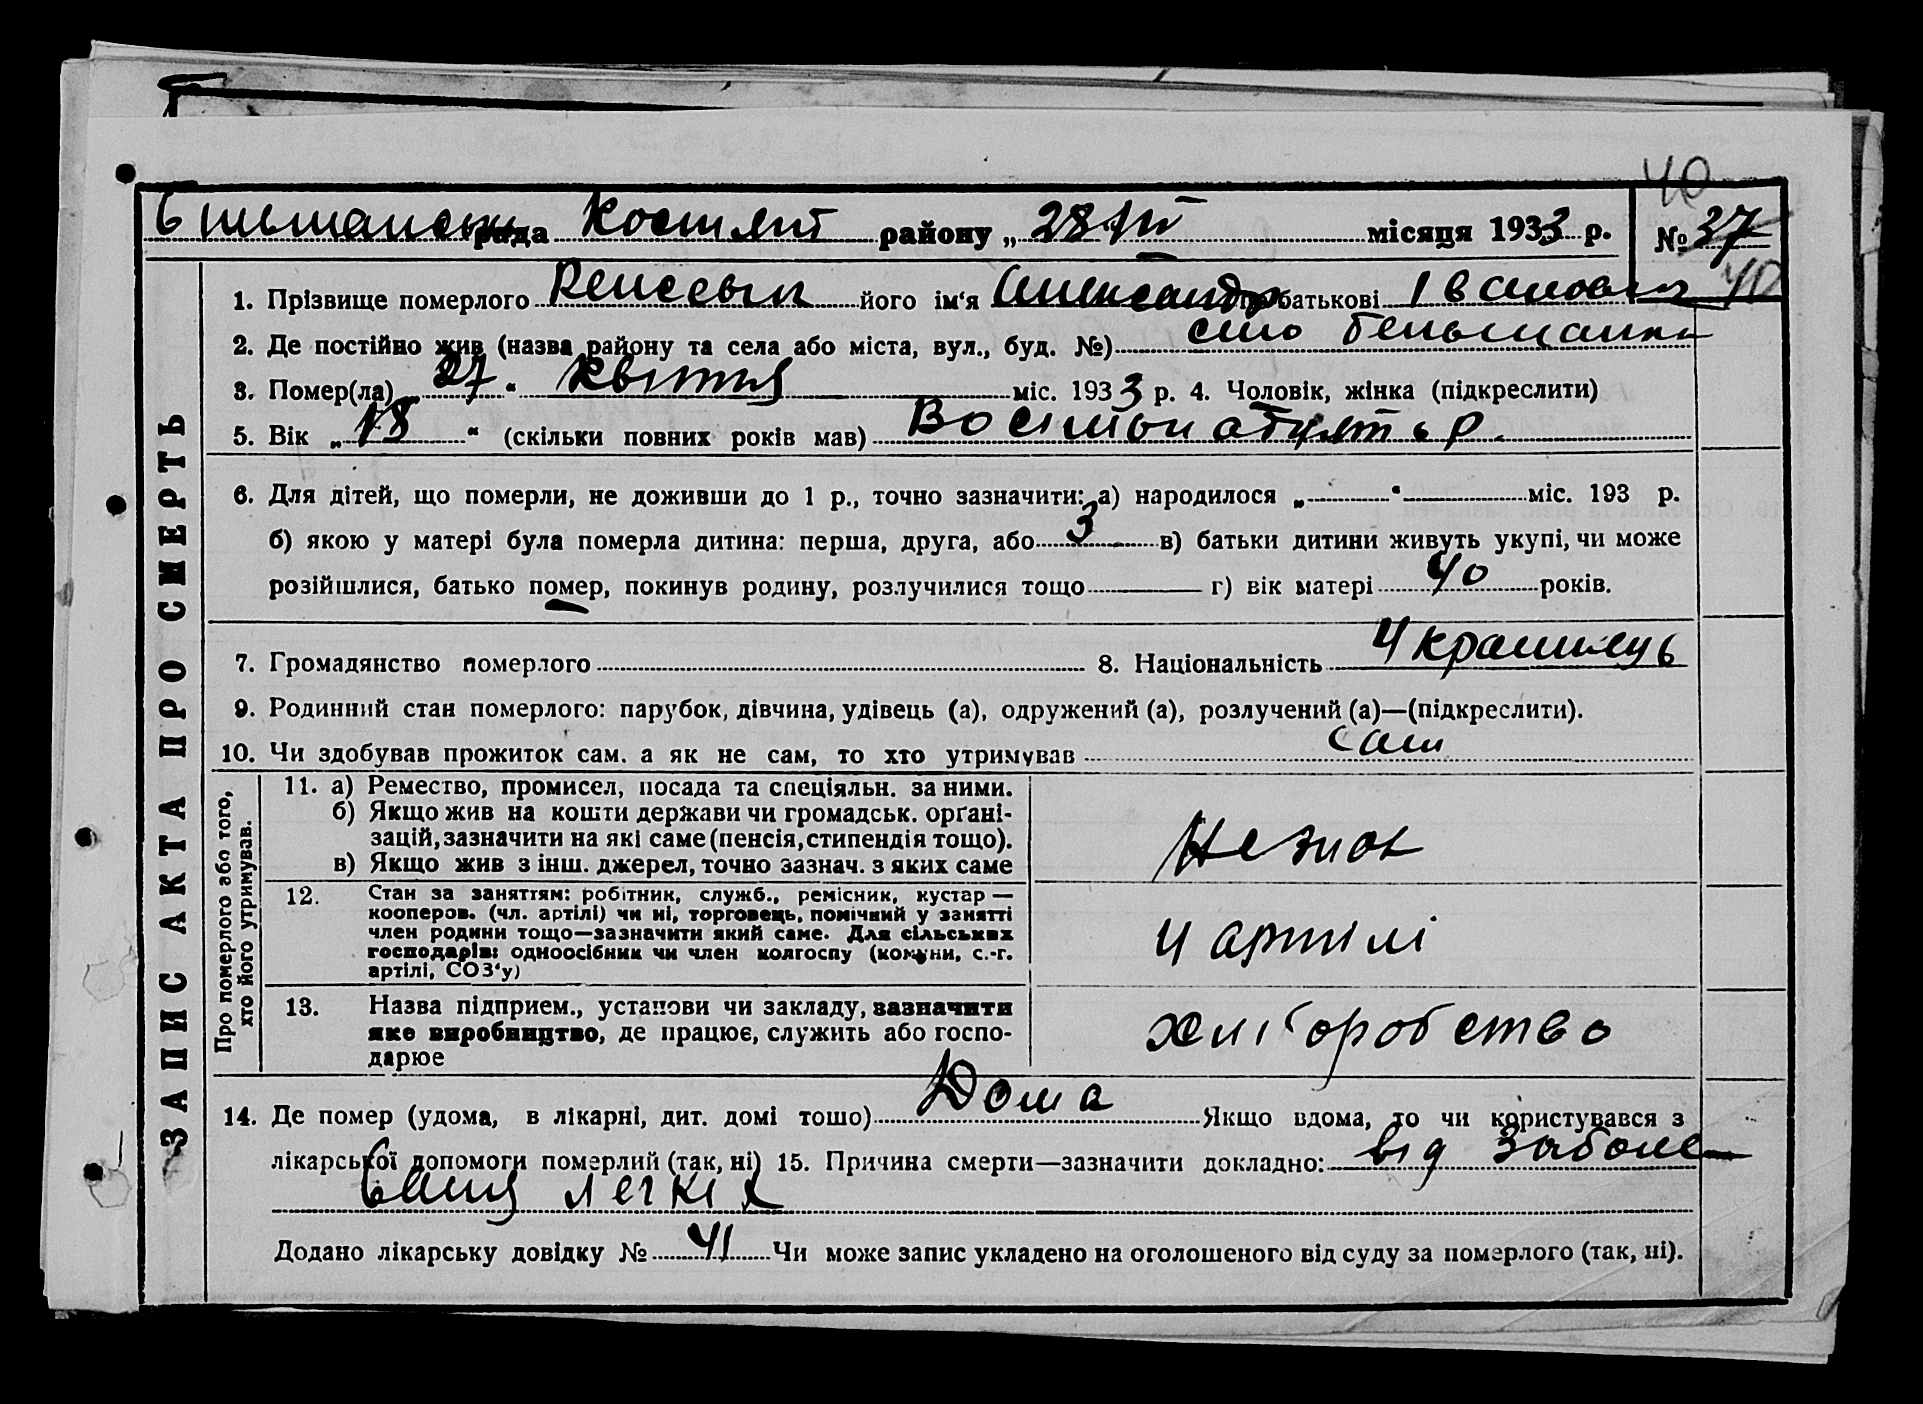 40
рада Костянт району „28/IV місяця 1933 р. № 37
40
1. Прізвище померлого його ім‘я Олександр по батькові Іванович
2. Де постійно жив (назва району та села або міста, вул., буд. №) село
3. Помер(ла) „27“ квітня міс. 1933 р. 4. Чоловік, жінка (підкреслити)
5. Вік „18“ (скільки повних років мав)
6. Для дітей, що померли, не доживши до 1 р., точно зазначити: а) народилося „ “ міс. 193 р.
б) якою у матері була померла дитина: перша, друга, або 3 в) батьки дитини живуть укупі, чи може
розійшлися, батько помер, покинув родину, розлучилися тощо г) вік матері 40 років.
7. Громадянство померлого 8. Національність Українець
9. Родинний стан померлого: парубок, дівчина, удівець (а), одружений (а), розлучений (а)—(підкреслити).
10. Чи здобував прожиток сам, а як не сам, то хто утримував сам
ЗАПИС АКТА ПРО СМЕРТЬ
Про померлого або того,
хто його утримував.
11. а) Ремество, промисел, посада та спеціяльн. за ними.
б) Якщо жив на кошти держави чи громадськ. орґані-
зацій, зазначити на які саме (пенсія, стипендія тощо).
в) Якщо жив з інш. джерел, точно зазнач. з яких саме
12. Стан за заняттям: робітник, служб., ремісник, кустар —
кооперов. (чл. артілі) чи ні, торговець, помічний у занятті
член родини тощо—зазначити який саме. Для сільських
господарів: одноосібник чи член колгоспу (комуни, с.-г.
артілі, СОЗ‘у)
У артілі
13. Назва підприєм., установи чи закладу, зазначити
яке виробництво, де працює, служить або госпо-
дарює
хліборобство
14. Де помер (удома, в лікарні, дит. домі тощо) Дома Якщо вдома, то чи користувався з
лікарської допомоги померлий (так, ні) 15. Причина смерти—зазначити докладно: від заболе-
вания легких
Додано лікарську довідку № 41 Чи може запис укладено на оголошеного від суду за померлого (так, ні).